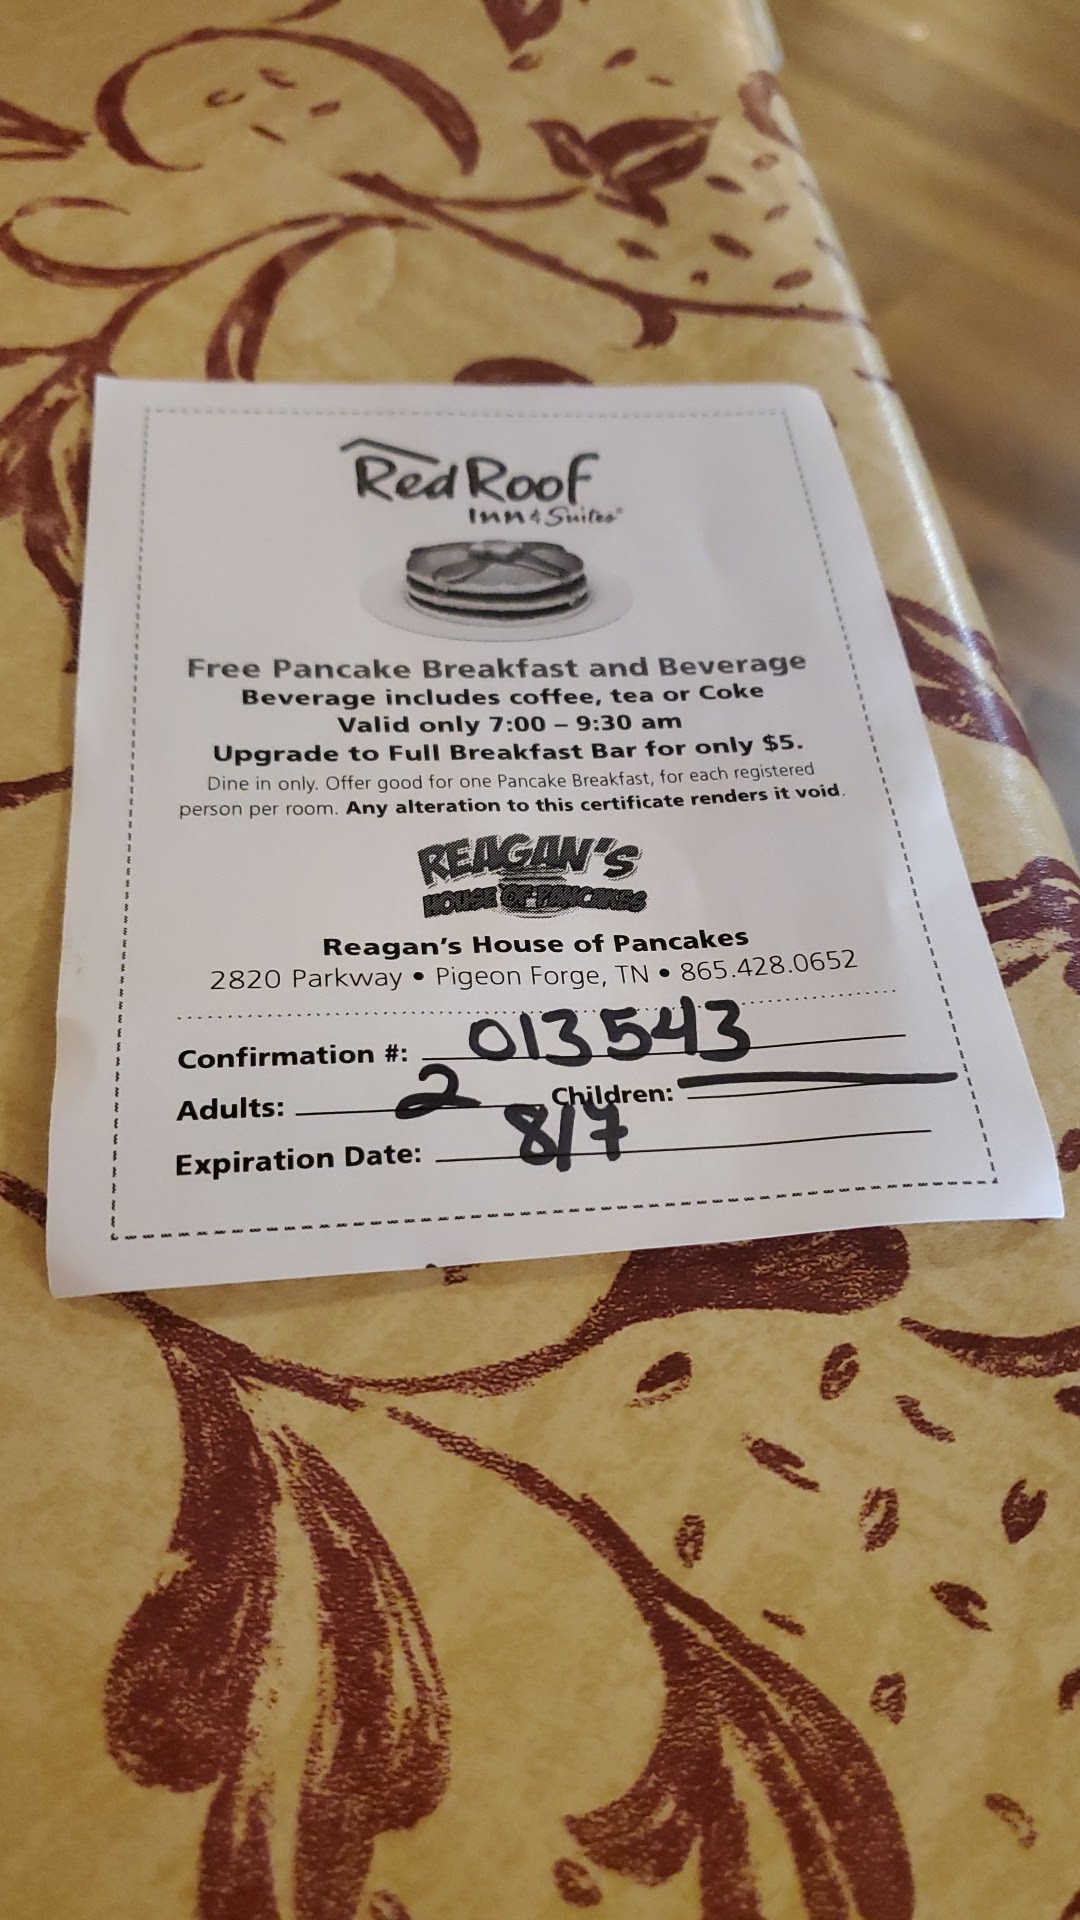 Red Roof
Inn & Suites®
Free Pancake Breakfast and Beverage
Beverage includes coffee, tea or Coke
Valid only 7:00 – 9:30 am
Upgrade to Full Breakfast Bar for only $5.
Dine in only. Offer good for one Pancake Breakfast, for each registered
person per room. Any alteration to this certificate renders it void.
REAGAN'S
HOUSE OF PANCAKES
Reagan's House of Pancakes
2820 Parkway • Pigeon Forge, TN • 865.428.0652
Confirmation #: 013543
Adults: 2 Children:
Expiration Date: 8/7